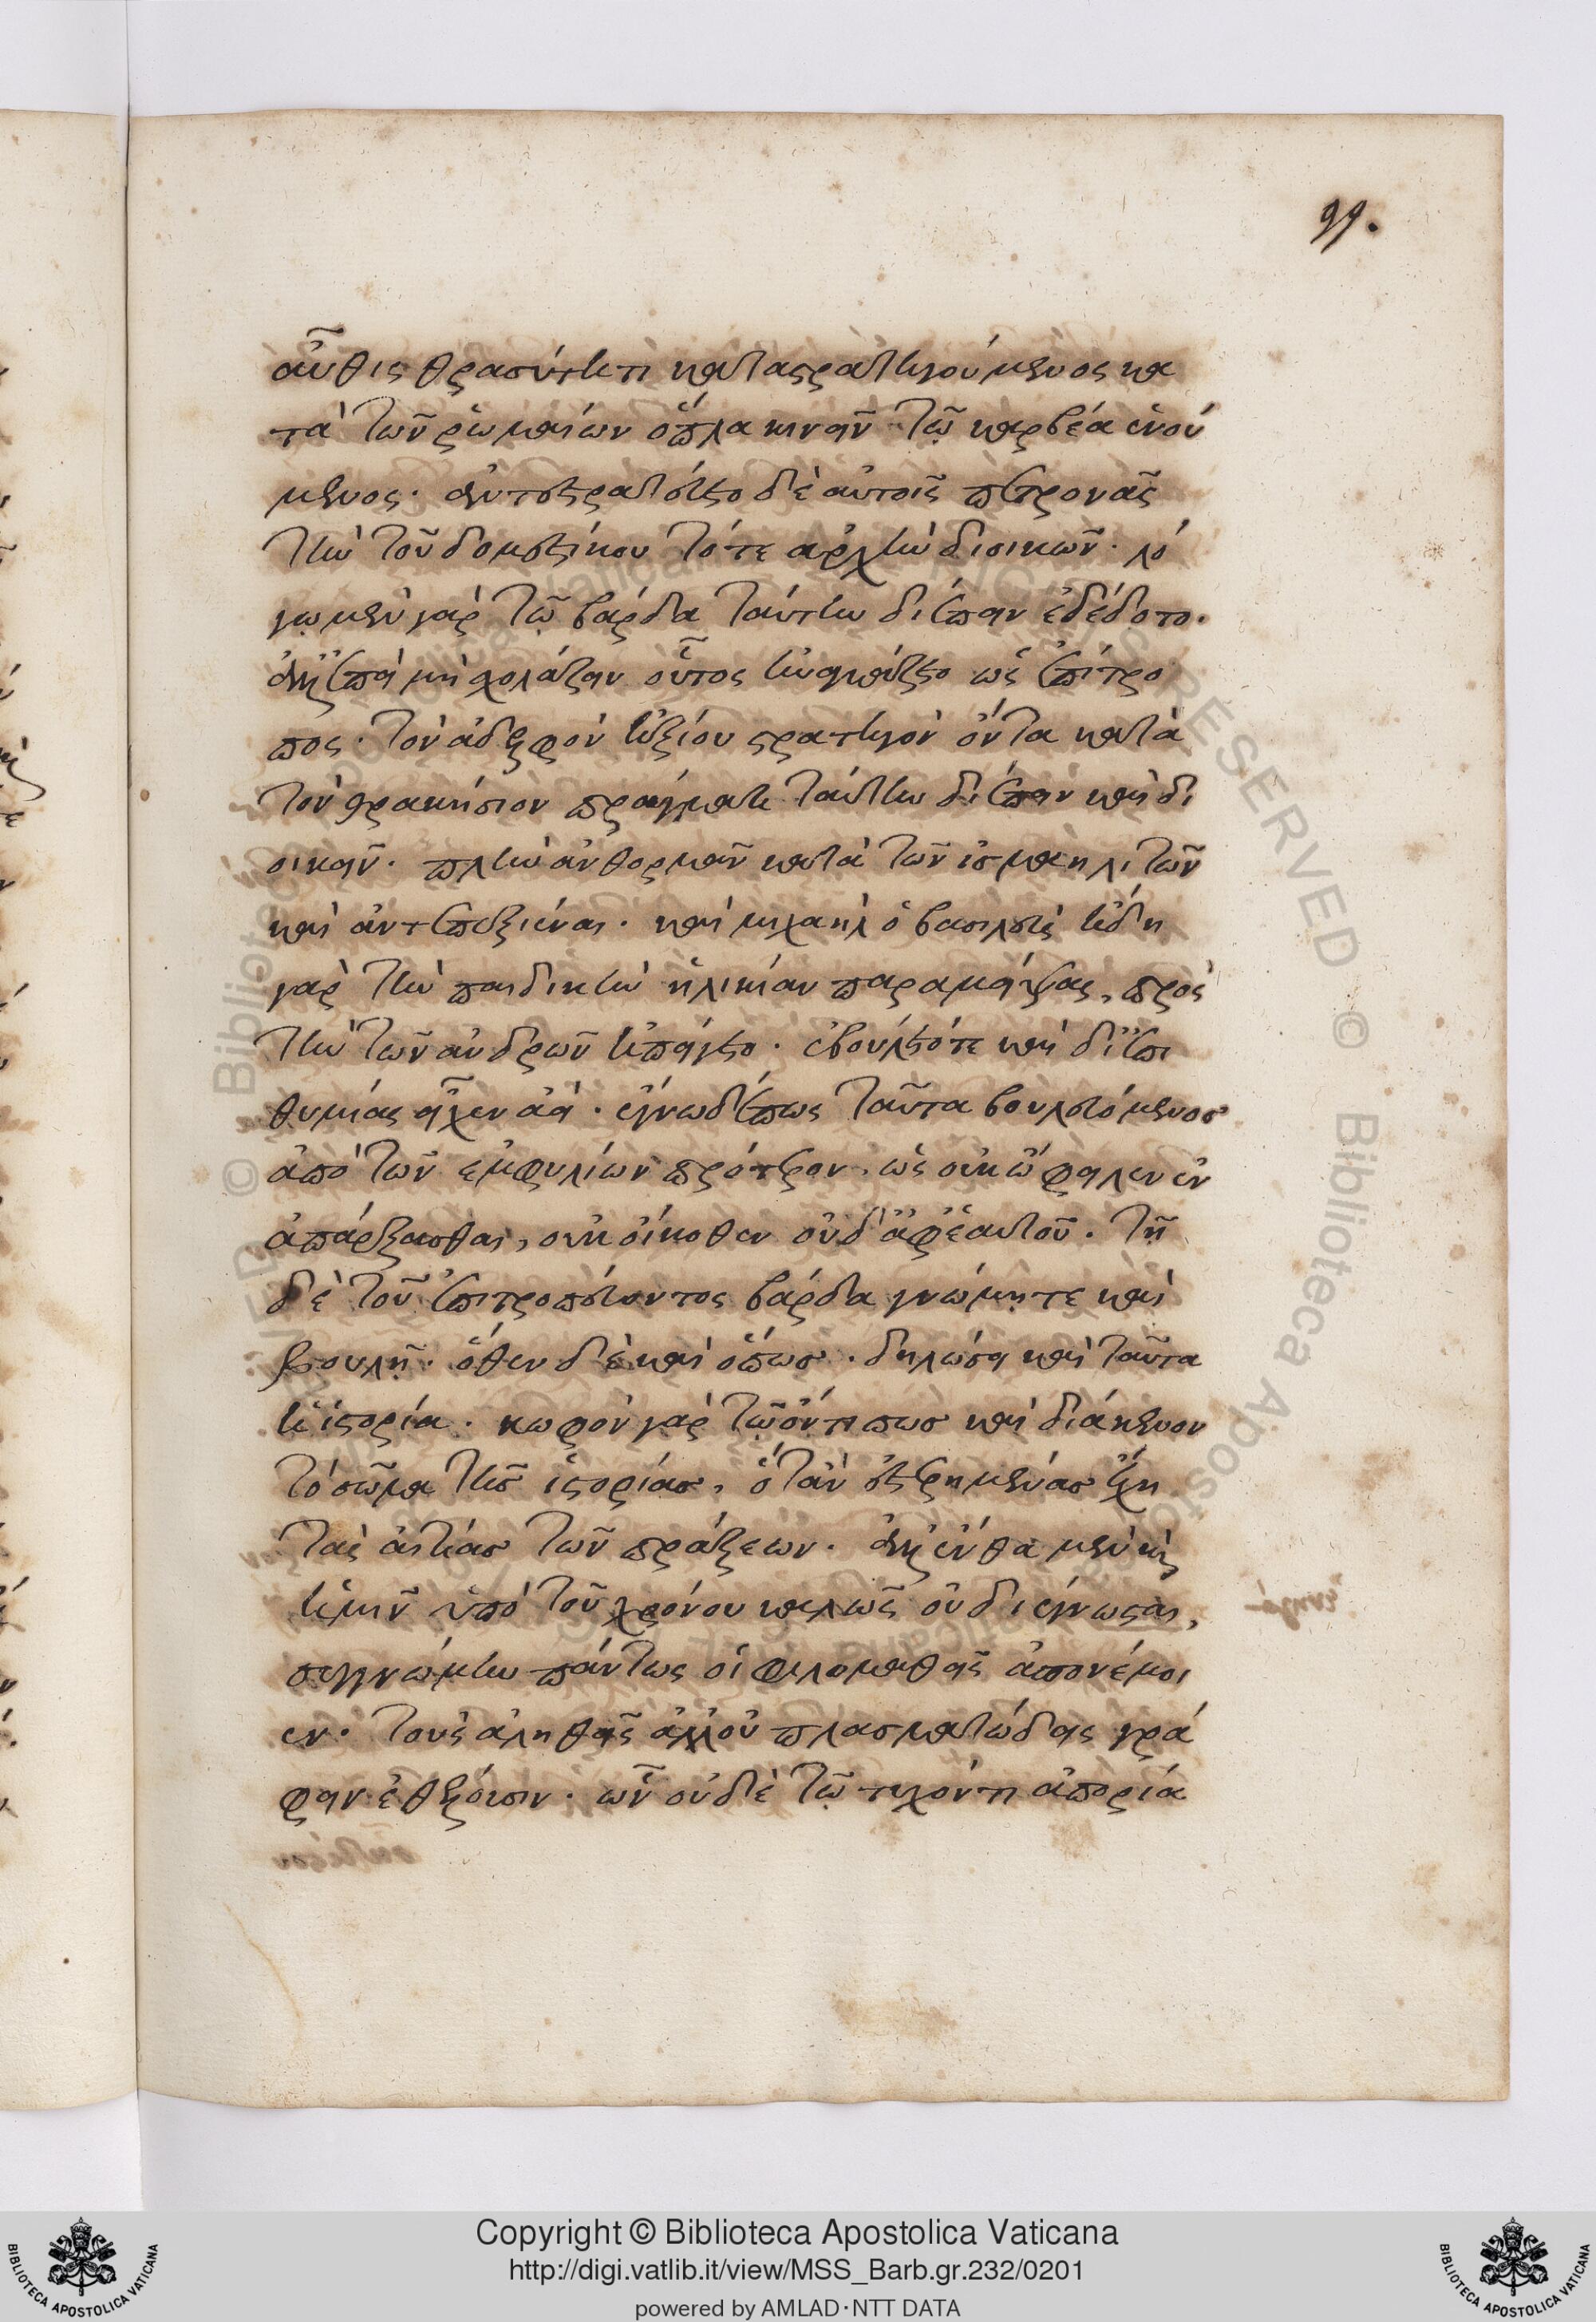 99.
αὖθις θρασύτητι καταστρατηγούμενος κα
τὰ τῶν ῥωμαίων ὅπλα κινεῖν τῷ καρβέα ἑνού
μενος. ἀντεστρατεύετο δὲ αὐτοῖς πετρονᾶς
τὴν τοῦ δομεστίκου τότε ἀρχὴν διοικῶν. λό
γω μὲν γὰρ τῷ βάρδα ταύτην διέπειν ἐδέδοτο.
ἀλλ' ἐπεὶ μὴ σχολάζειν οὗτος ἠναγκάζετο ὡς ἐπίτρο
πος. τὸν ἀδελφὸν ἠξίου στρατηγὸν ὄντα κατὰ
τὸν θρακήσιον ταύτην διέπειν καὶ δι
οικεῖν. πλὴν ἀνθορμᾶν κατὰ τῶν ἰσμαηλιτῶν
καὶ ἀντεπεξιέναι. καὶ μιχαὴλ ὁ βασιλεὺς ἤδη
γὰρ τὴν παιδικὴν ἡλικίαν παραμείψας, πρὸς
τὴν τῶν ἀνδρῶν ἠπείγετο. ἐβούλετό τε καὶ δι' ἐπι
θυμίας εἶχεν ἀεί. ἔγνω δέ πως ταῦτα βουλευόμενος
ἀπὸ τῶν ἐμφυλίων πρότερον. ὡς οὐκ ὤφειλεν ἐν
ἀπάρξασθαι, οὐκ οἴκοθεν οὐδ' ἀφ' ἑαυτοῦ. τῇ
δὲ τοῦ ἐπιτροπεύοντος βάρδα γνώμῃ τε καὶ
βουλῇ. ὅθεν δὲ καὶ ὅπως. δηλώσει καὶ ταῦτα
ἡ ἱστορία. κωφὸν γὰρ τῷ ὄντι πως καὶ διάκενον
τὸ σῶμα τῆς ἱστορίας, ὅταν ἐστερημένας ἔχη
τὰς αἰτίας τῶν πράξεων. ἀλλ' ἔνθα μὲν καὶ
ἡμῖν ὑπὸ τοῦ χρόνου καλῶς οὐ διέγνωσαι,
συγγνώμην πάντως οἱ φιλομαθεῖς ἀπονέμοι
εν. τοὺς ἀληθεῖς ἀλλ' οὐ πλασματώδεις γρά
φειν ἐθέλουσιν. ὧν οὐδὲ τῷ τυχόντι ἀπορία
Copyright © Biblioteca Apostolica Vaticana
http://digi.vatlib.it/view/MSS_Barb.gr.232/0201
powered by AMLAD·NTT DATA